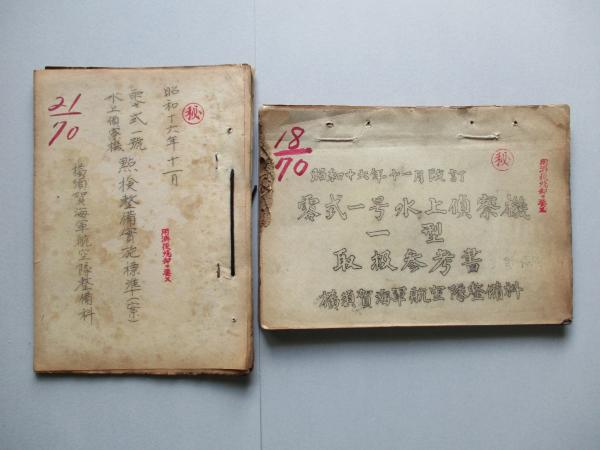 21/70
㊙
昭和十六年十一月
零式一號
水上偵察機
點檢整備實施標準(案)
橫須賀海軍航空隊整備科
用済後焼却ヲ要ス
18/70
㊙
用済後焼却ヲ要ス
昭和十六年十一月改訂
零式一号水上偵察機
一型
取扱参考書
橫須賀海軍航空隊整備科